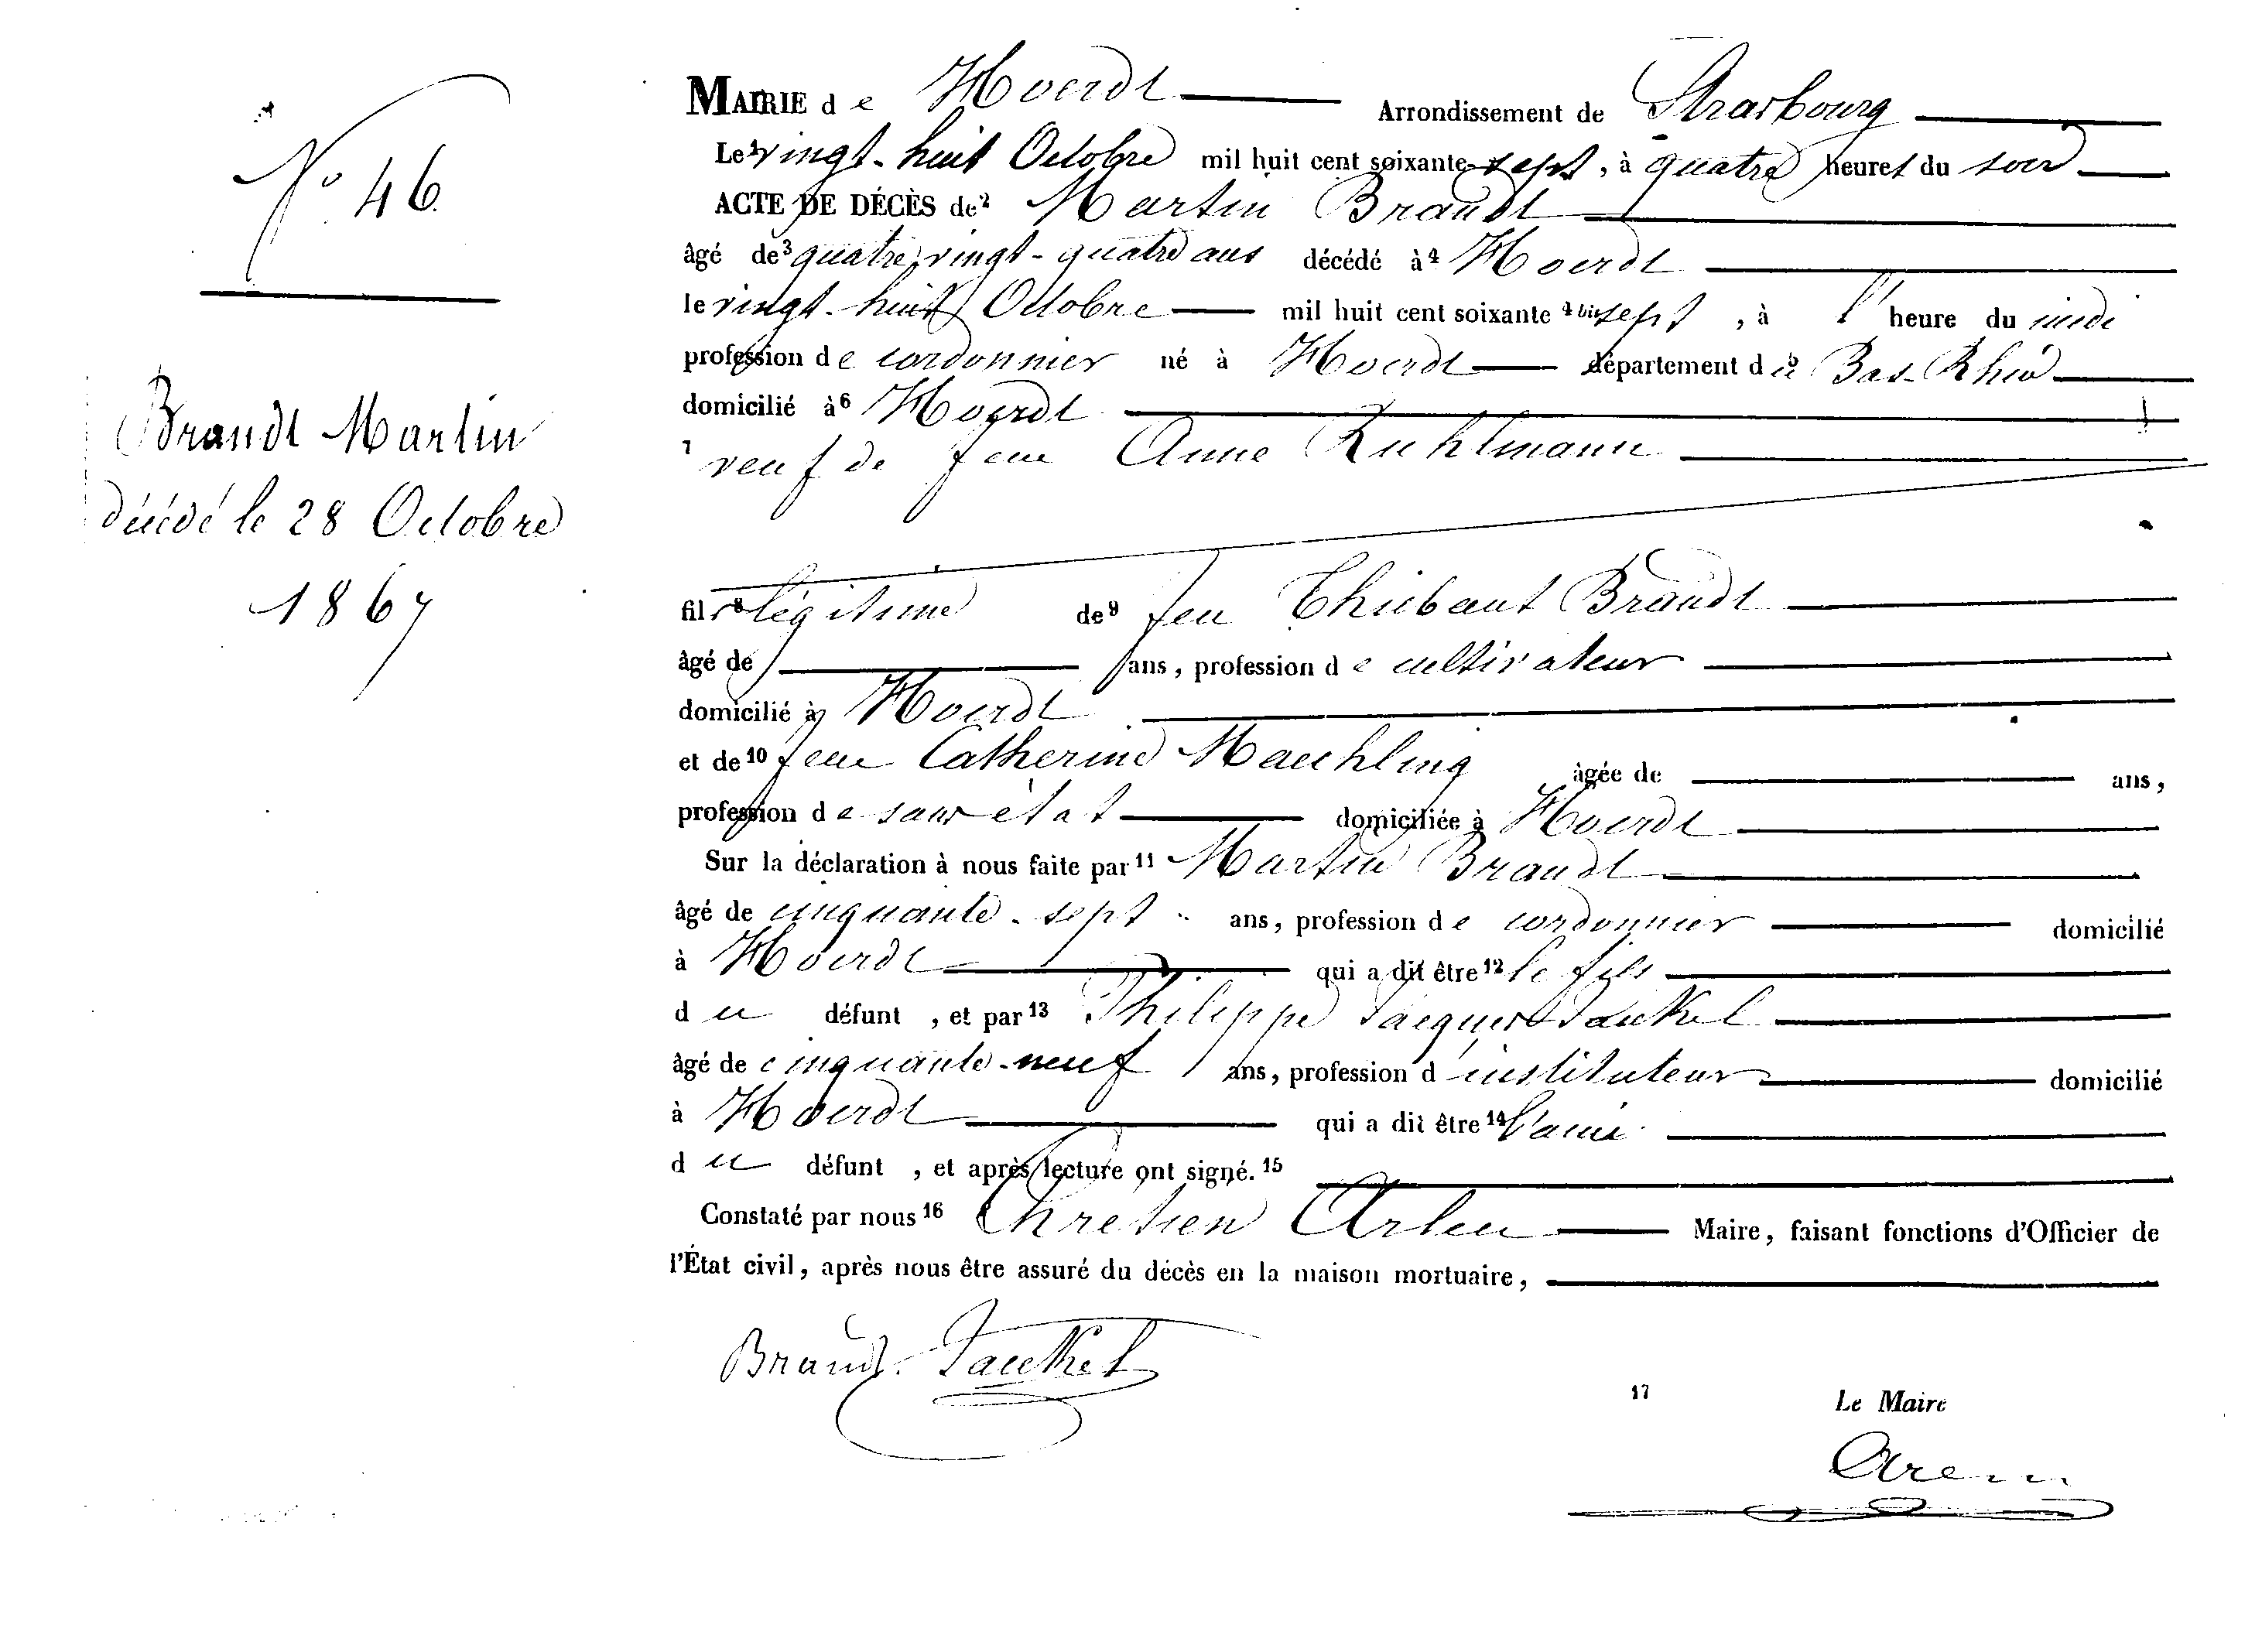 N° 46
Brandt Martin
décédé le 28 Octobre
1867
MAIRIE de Hoerdt Arrondissement de Strasbourg
Le 1 vingt-huit Octobre mil huit cent soixante sept, à quatre heures du soir
ACTE DE DÉCÈS de 2 Martin Brandt
âgé de 3 quatre vingt-quatre ans décédé à 4 Hoerdt
le vingt-huit Octobre mil huit cent soixante 4 bis sept, à l' heure du midi
profession de cordonnier né à Hoerdt département du 5 Bas-Rhin
domicilié à 6 Hoerdt
7 veuf de feue Anne Ruhlmann
fils 8 légitime de 9 feu Thiébaut Brandt
âgé de ans, profession de cultivateur
domicilié à Hoerdt
et de 10 feue Catherine Maechling âgée de ans,
profession de sans état domiciliée à Hoerdt
Sur la déclaration à nous faite par 11 Martin Brandt
âgé de cinquante-sept ans, profession de cordonnier domicilié
à Hoerdt qui a dit être 12 le fils
du défunt, et par 13 Philippe Jacques
âgé de cinquante-neuf ans, profession d'instituteur domicilié
à Hoerdt qui a dit être 14 l'ami
du défunt, et après lecture ont signé. 15
Constaté par nous 16 Chrétien Maire, faisant fonctions d'Officier de
l'État civil, après nous être assuré du décès en la maison mortuaire,
Brandt
17 Le Maire